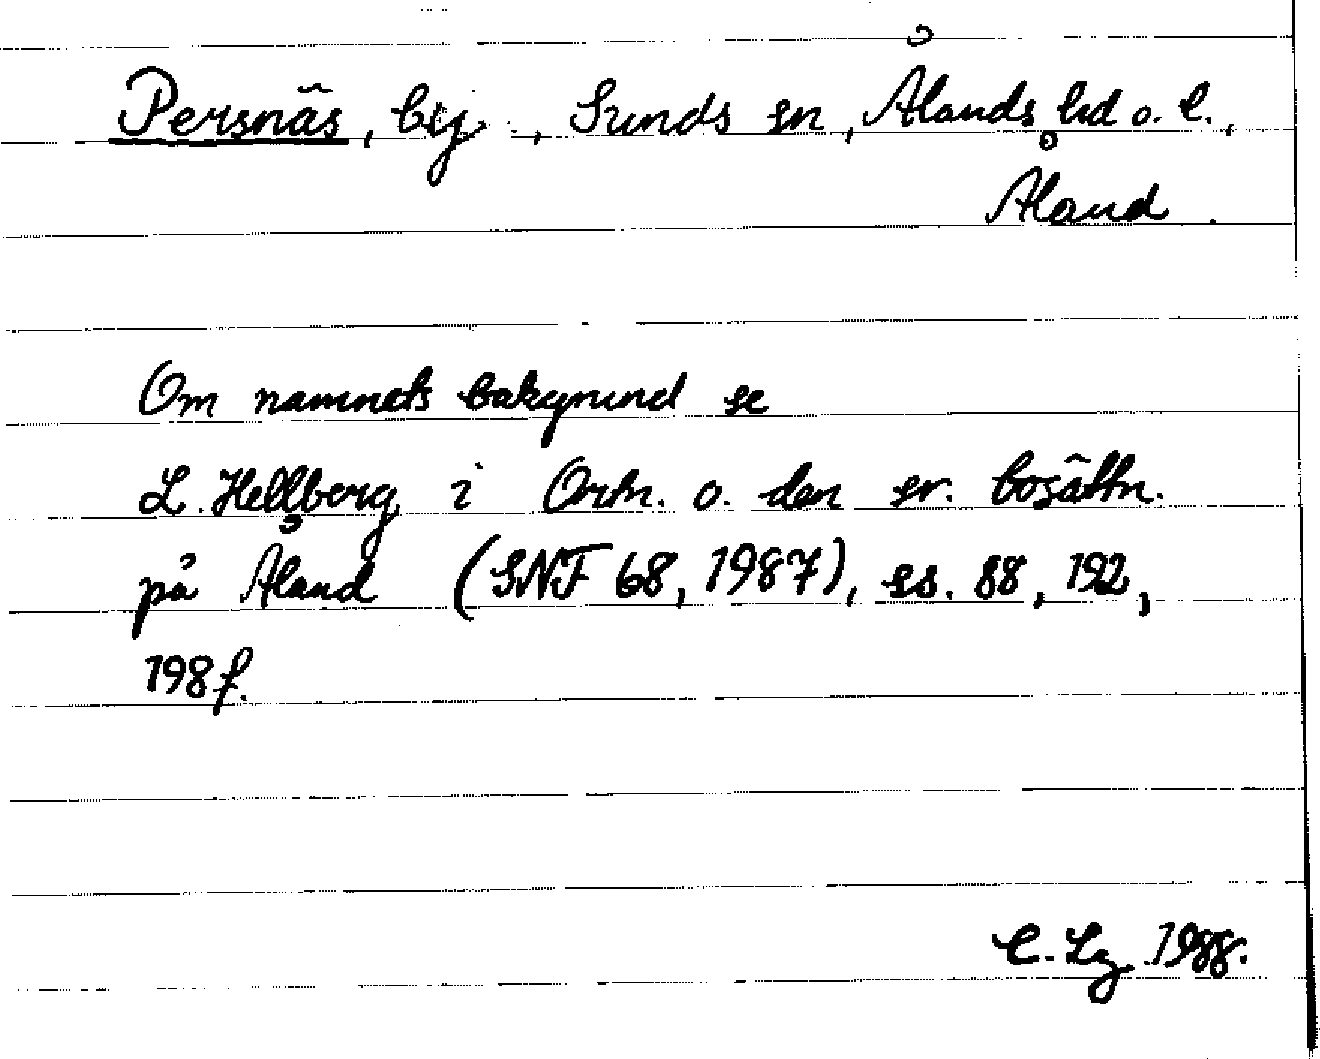 Persnäs, by, Sunds sn, Ålands hd o. l.,
Åland.
Om namnets bakgrund se
L. Hellberg i Ortn. o. den sv. bosättn.
på Åland (SNF 68, 1987), ss. 88, 192,
198f.
C. Lg 1988.